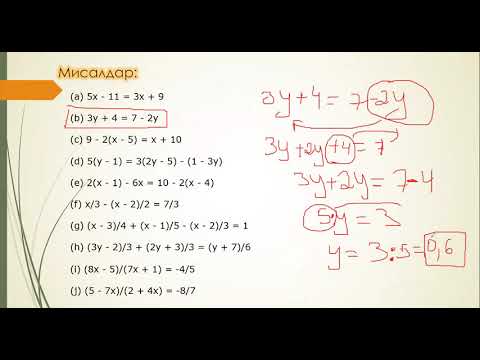 Мисалдар:
(a) 5x - 11 = 3x + 9
(b) 3y + 4 = 7 - 2y
(c) 9 - 2(x - 5) = x + 10
(d) 5(y - 1) = 3(2y - 5) - (1 - 3y)
(e) 2(x - 1) - 6x = 10 - 2(x - 4)
(f) x/3 - (x - 2)/2 = 7/3
(g) (x - 3)/4 + (x - 1)/5 - (x - 2)/3 = 1
(h) (3y - 2)/3 + (2y + 3)/3 = (y + 7)/6
(i) (8x - 5)/(7x + 1) = -4/5
(j) (5 - 7x)/(2 + 4x) = -8/7
3y+4=7-2y
3y+2y+4=7
3y+2y=7-4
5·y=3
y=3:5=0,6